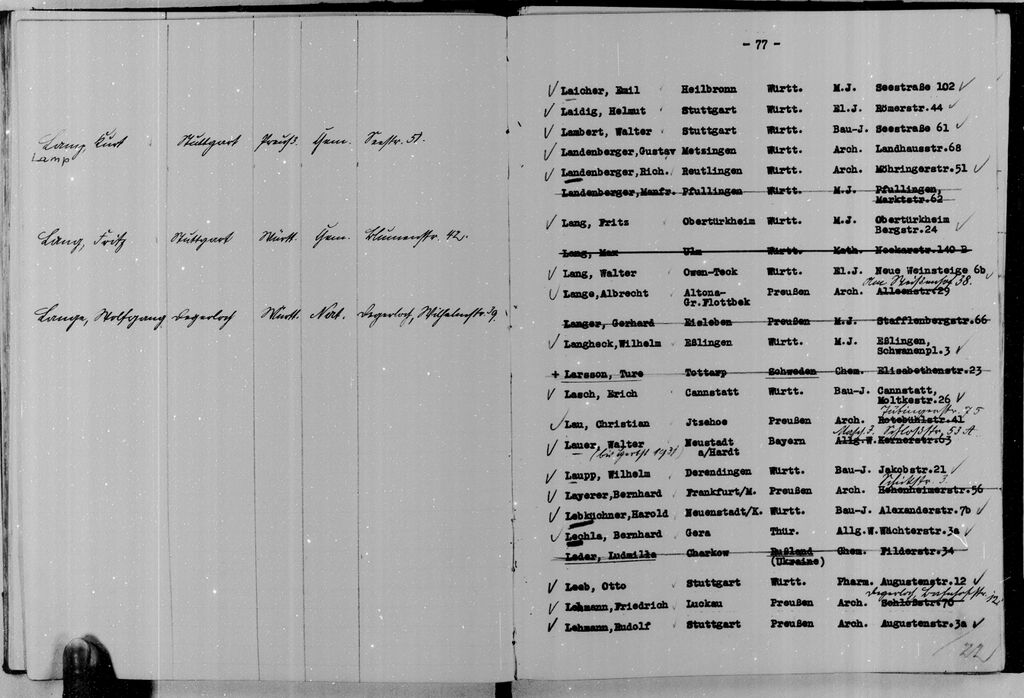 Lamp, Kurt Stuttgart Preuß. Chem. Seestr. 51.
Lamp
Lang, Fritz Stuttgart Württ. Chem. Blumenstr. 42.
Lange, Wolfgang Degerloch Württ. Nat. Degerloch, Wilhelmstr. 19
- 77 -
✓ Laicher, Emil Heilbronn Württ. M.J. Seestraße 102 ✓
✓ Laidig, Helmut Stuttgart Württ. El.J. Römerstr.44 ✓
✓ Lambert, Walter Stuttgart Württ. Bau-J. Seestraße 61 ✓
✓ Landenberger,Gustav Metzingen Württ. Arch. Landhausstr.68
✓ Landenberger,Rich. Reutlingen Württ. Arch. Möhringerstr.51 ✓
Landenberger,Manfr. Pfullingen Württ. M.J. Pfullingen,
Marktstr.62
✓ Lang, Fritz Obertürkheim Württ. M.J. Obertürkheim
Bergstr.24 ✓
Lang, Max Ulm Württ. Math. Neckarstr.140 B
✓ Lang, Walter Owen-Teck Württ. El.J. Neue Weinsteige 6b ✓
38.
✓ Lange,Albrecht Altona- Preußen Arch. Alleenstr.29
Gr.Flottbek
Langer, Gerhard Eisleben Preußen M.J. Stafflenbergstr.66
✓ Langheck,Wilhelm Eßlingen Württ. M.J. Eßlingen,
Schwanenpl.3 ✓
+ Larsson, Ture Tottarp Schweden Chem. Elisabethenstr.23
✓ Lasch, Erich Cannstatt Württ. Bau-J. Cannstatt,
Moltkestr.26 ✓
Tübingerstr. 75
✓ Lau, Christian Jtzehoe Preußen Arch. Rotebühlstr.41
Schloßstr. 53 A
✓ Lauer, Walter Neustadt Bayern Allg.W.Kernerstr.63
(bis Herbst 1931) a/Hardt
✓ Laupp, Wilhelm Derendingen Württ. Bau-J. Jakobstr.21 ✓
✓ Layerer,Bernhard Frankfurt/M. Preußen Arch. Hohenheimerstr.56
✓ Lebküchner,Harold Neuenstadt/K. Württ. Bau-J. Alexanderstr.7b ✓
✓ Lechla, Bernhard Gera Thür. Allg.W.Wächterstr.3a ✓
Leder, Ludmilla Charkow Rußland Chem. Filderstr.34
(Ukraine)
✓ Leeb, Otto Stuttgart Württ. Pharm. Augustenstr.12 ✓
Degerloch, Bahnhofstr. 12.
✓ Lehmann,Friedrich Luckau Preußen Arch. Schloßstr.76
✓ Lehmann,Rudolf Stuttgart Preußen Arch. Augustenstr.3a ✓